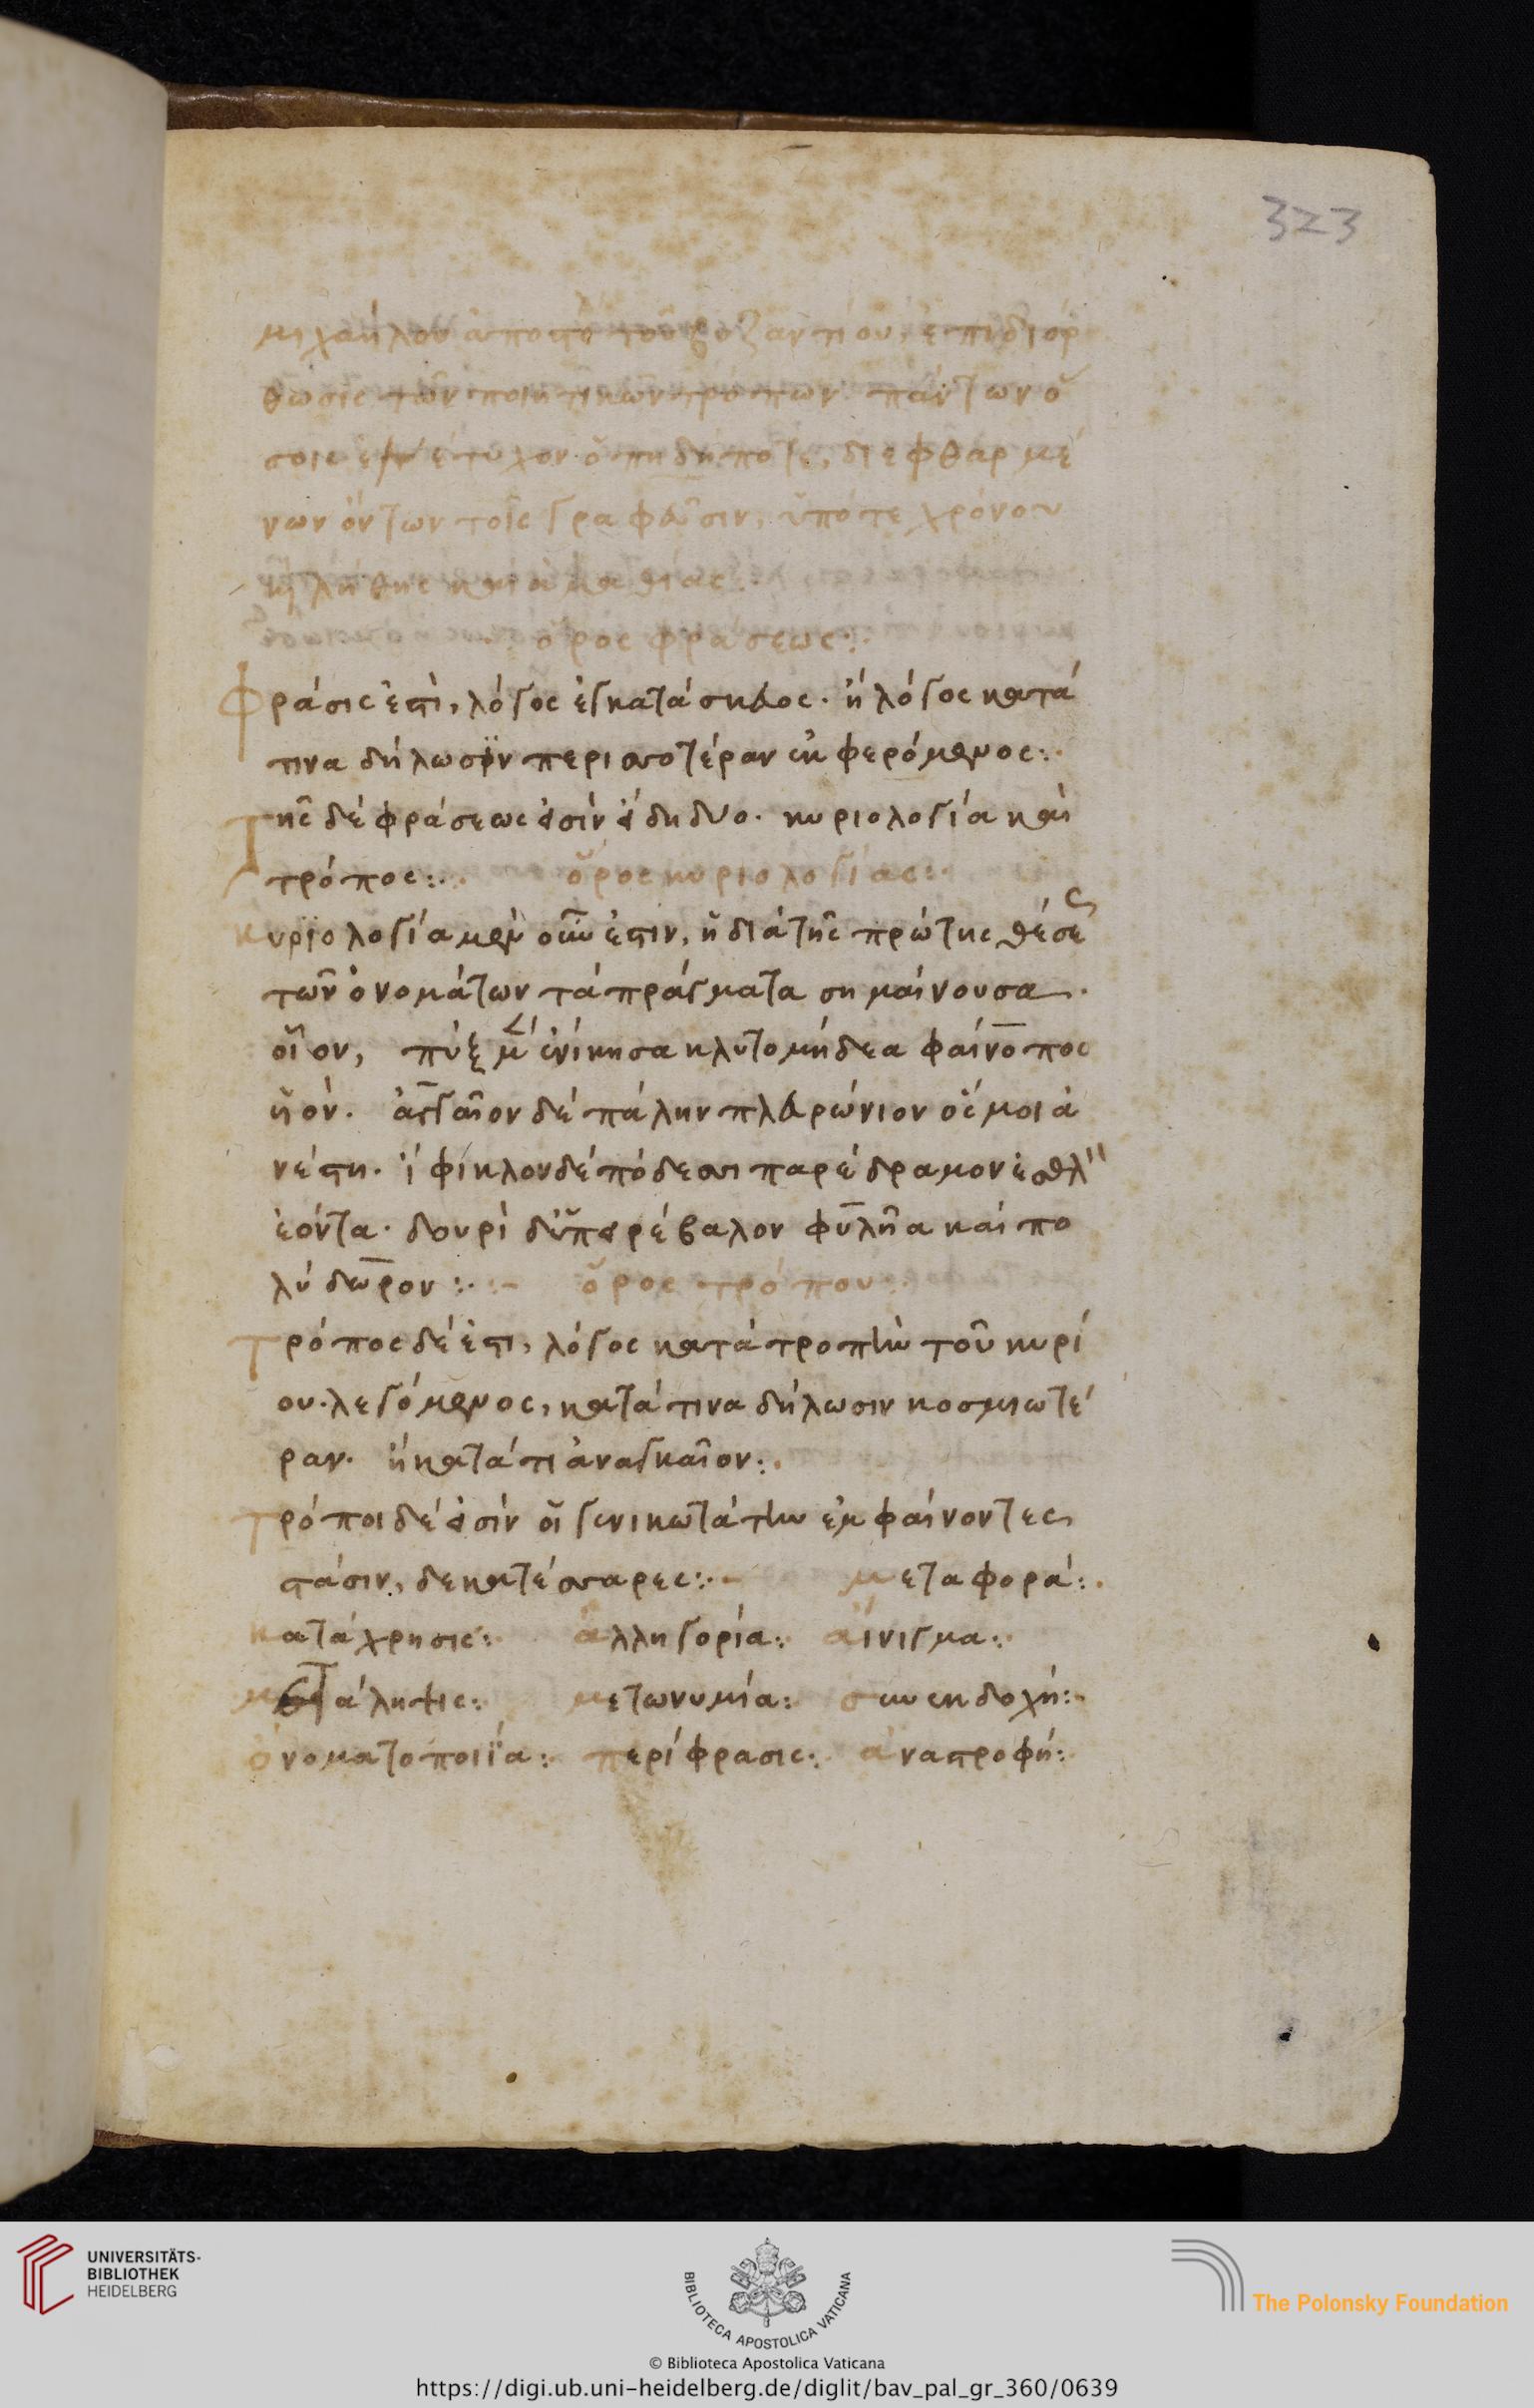 323
μιχαήλου ἀποστό τοῦ βυζαντίου, ἐπιδιόρ
θωσις τῶν ποιητικῶν τρόπων πάντων ὅ
σοις ἐτύχον ὁπηδήποτε, διεφθαρμέ
νων ὄντων τοῖς γραφεῦσιν, ὑπότε χρόνου
λήθης καὶ ἀμαθίας:
ὅρος φράσεως:.
Φράσις ἐστὶ, λόγος ἐγκατάσκευος. ἢ λόγος κατά
τινα δήλωσϊν περισσοτέραν ἐκφερόμενος:.
Τῆς δὲ φράσεως εἰσὶν εἴδη δύο. κυριολογία καὶ
τρόπος:. ὅρος κυριολογίας:.
Κυρϊολογία μὲν οὖν ἐστιν, ἡ διὰ τῆς πρώτης θέσε
τῶν ὀνομάτων τὰ πράγματα σημαίνουσα.
οἷον, πύξ μὲν ἐνίκησα κλυτομήδεα φαίνοπος
ϋἱόν. ἀγγαῖον δὲ πάλην πλευρώνιον ὅς μοι ἀ
νέστη. ἴφικλον δὲ πόδεσσι παρέδραμον ἐσθλ
ἐόντα. δουρὶ δ' ὑπειρέβαλον φυλῆα καὶ πο
λύδωρον:.:- ὅρος τρόπου:.
Τρόπος δέ ἐστι, λόγος κατὰ τροπὴν τοῦ κυρί
ου. λεγόμενος, κατά τινα δήλωσιν κοσμιωτέ
ραν. ἢ κατά τι ἀναγκαῖον:.
Τρόποι δέ εἰσὶν οἱ γενικωτάτην ἐμφαίνοντες
στάσιν, δεκατέσσαρες:.- μεταφορά:.
κατάχρησις:. ἀλληγορία:. αἴνιγμα:.
μετάληψις:. μετωνυμία:. συνεκδοχή:.
ὀνοματοποιΐα:. περίφρασις:. ἀναστροφή:.
UNIVERSITÄTS-
BIBLIOTHEK
HEIDELBERG
BIBLIOTECA APOSTOLICA VATICANA
The Polonsky Foundation
© Biblioteca Apostolica Vaticana
https://digi.ub.uni-heidelberg.de/diglit/bav_pal_gr_360/0639